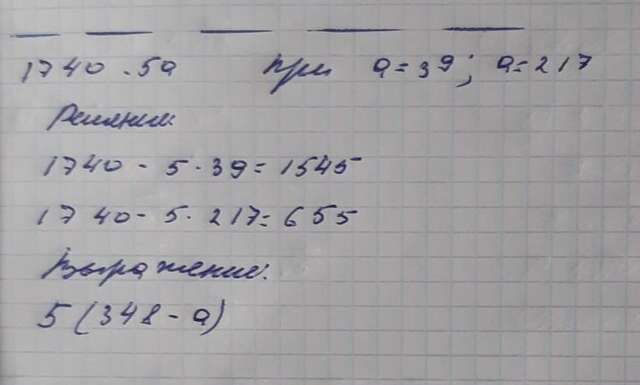 1740 - 5a при a = 39; a = 217
Решение:
1740 - 5 · 39 = 1545
1740 - 5 · 217 = 655
Выражение:
5 (348 - a)